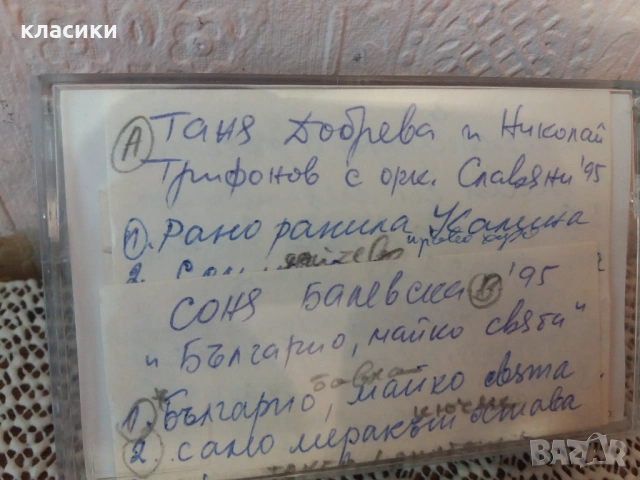 класики
А Таня Добрева и Николай
Трифонов с орк. Славяни '95
1. Рано ранила Калина
2.
Соня Балевска В '95
"Българио, майко свята"
бавна
1. Българио, майко свята
2. само меракът остава
BAZAR